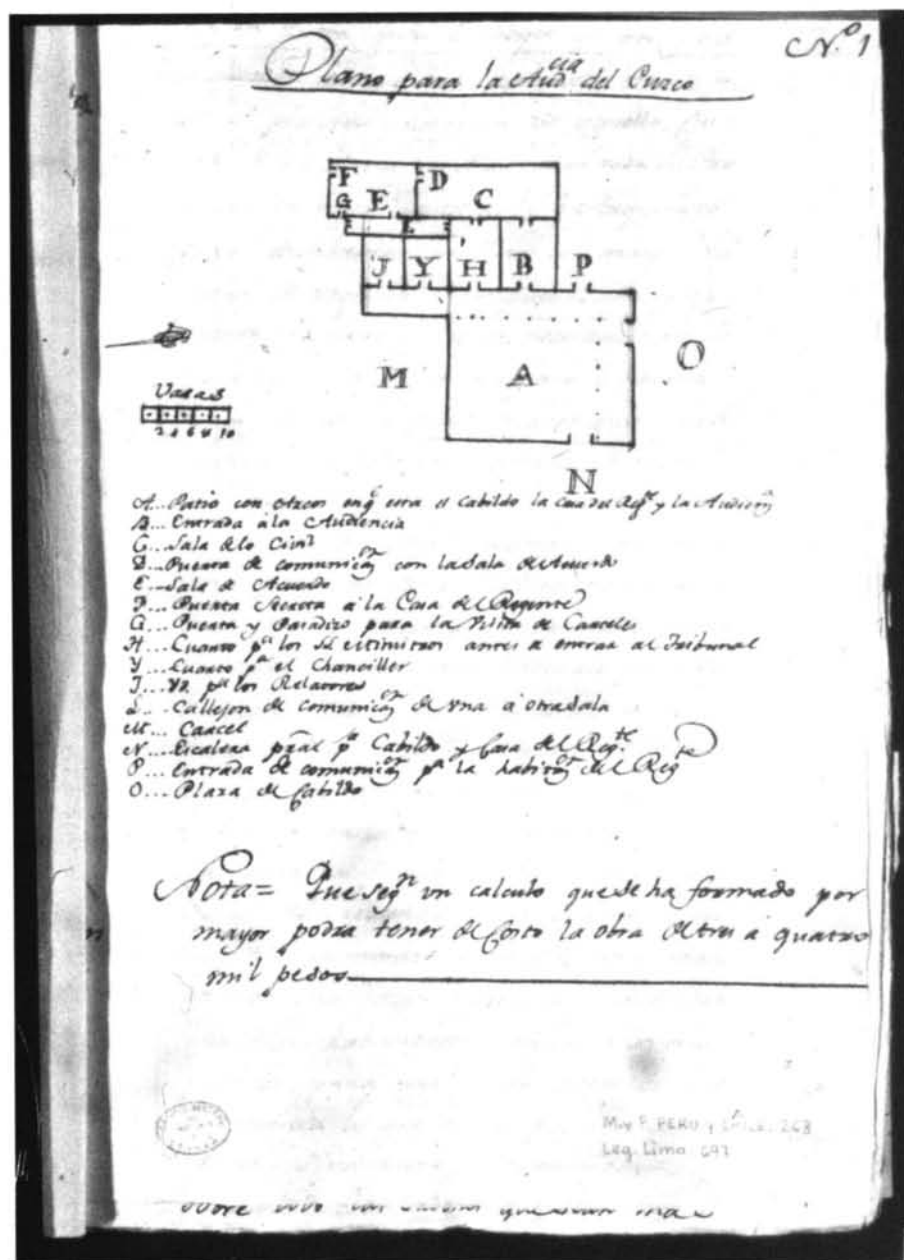 N.º 1
Plano para la Aud.cia del Cuzco
F D
G E C
L
J Y H B P
M A O
Varas
2 4 6 8 10
N
A... Patio con Arcos enq.e esta el Cabildo la Casa del Reg.te y la Audien.a
B... Entrada à la Audiencia
C... Sala de lo Civil
D... Puerta de comunicac.on con la Sala de Acuerdo
E... Sala de Acuerdo
F... Puerta Secreta a la Casa del Regente
G... Puerta y Paradizo para la Visita de Carceles
H... Cuarto p.a los S.S. Ministros antes de entrar al Tribunal
Y... Cuarto p.a el Chanciller
J... Yd. p.a los Relatores
L... Callejon de comunicac.on de una à otra Sala
M... Carcel
N... Escalera pral p.a Cabildo y Casa del Reg.te
P... Entrada de comunicac.on p.a la habitac.on del Reg.te
O... Plaza de Cabildo
Nota= Que seg.n un calculo que se ha formado por
mayor podra tener de Costo la obra de tres a quatro
mil pesos
M y P. PERU y CHILE, 263
Leg. Lima 697